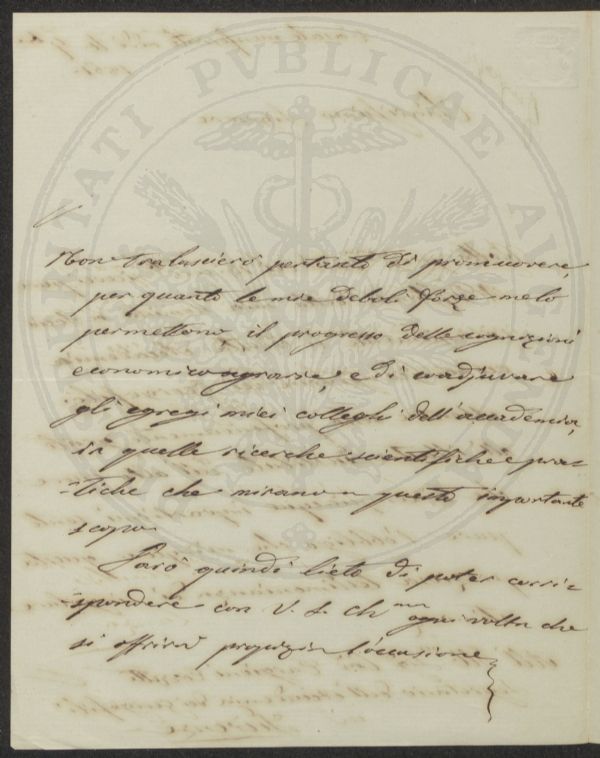 PROSPERITATI PVBLICAE AVGENDAE
Non tralascierò pertanto di promuovere,
per quanto le mie deboli forze me lo
permettono, il progresso delle cognizioni
economico agrarie, e di coadjuvare
gli egregi miei colleghi dell'accademia,
in quelle ricerche scientifiche e pra-
-tiche che mirano a questo importante
scopo.
Sarò quindi lieto di poter corri-
-spondere con V. S. Ch.ma ogni volta che
si offrirà propizia l'occasione